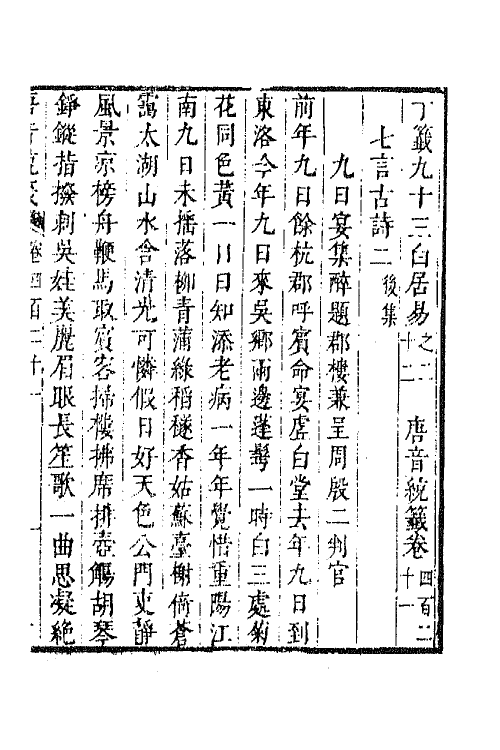 丁籤九十三白居易之二十二　唐音統籤卷四百二十一
七言古詩二後集
九日宴集醉題郡樓兼呈周殷二判官
前年九日餘杭郡呼賓命宴虛白堂去年九日到
東洛今年九日來吳鄉兩邊蓬鬢一時白三處菊
花同色黃一日日知添老病一年年覺惜重陽江
南九日未揺落柳青蒲綠稻穟香姑蘇臺榭倚蒼
靄太湖山水含清光可憐假日好天色公門吏靜
風景凉榜舟鞭馬取賓客掃樓拂席排壺觴胡琴
錚鏦指撥剌吳娃美麗眉眼長笙歌一曲思凝絶
卷四百二十一　一